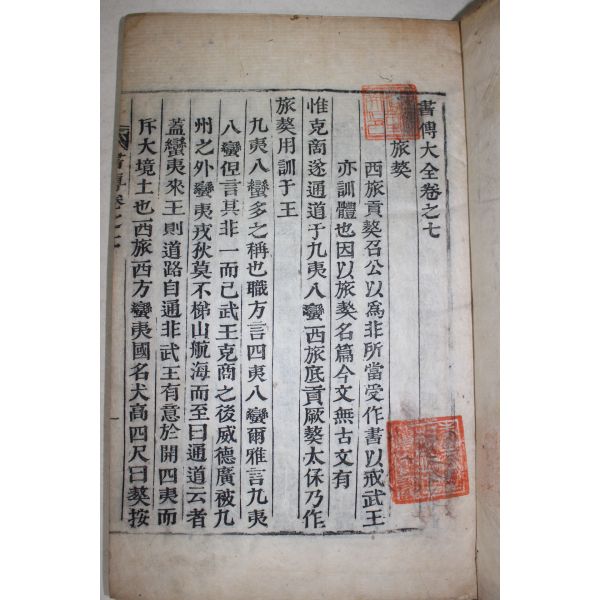 書傳大全卷之七
旅獒
西旅貢獒召公以爲非所當受作書以戒武王
亦訓體也因以旅獒名篇今文無古文有
惟克商遂通道于九夷八蠻西旅底貢厥獒太保乃作
旅獒用訓于王
九夷八蠻多之稱也職方言四夷八蠻爾雅言九夷
八蠻但言其非一而已武王克商之後威德廣被九
州之外蠻夷戎狄莫不梯山航海而至曰通道云者
蓋蠻夷來王則道路自通非武王有意於開四夷而
斥大境土也西旅西方蠻夷國名犬高四尺曰獒按
書傳卷之七